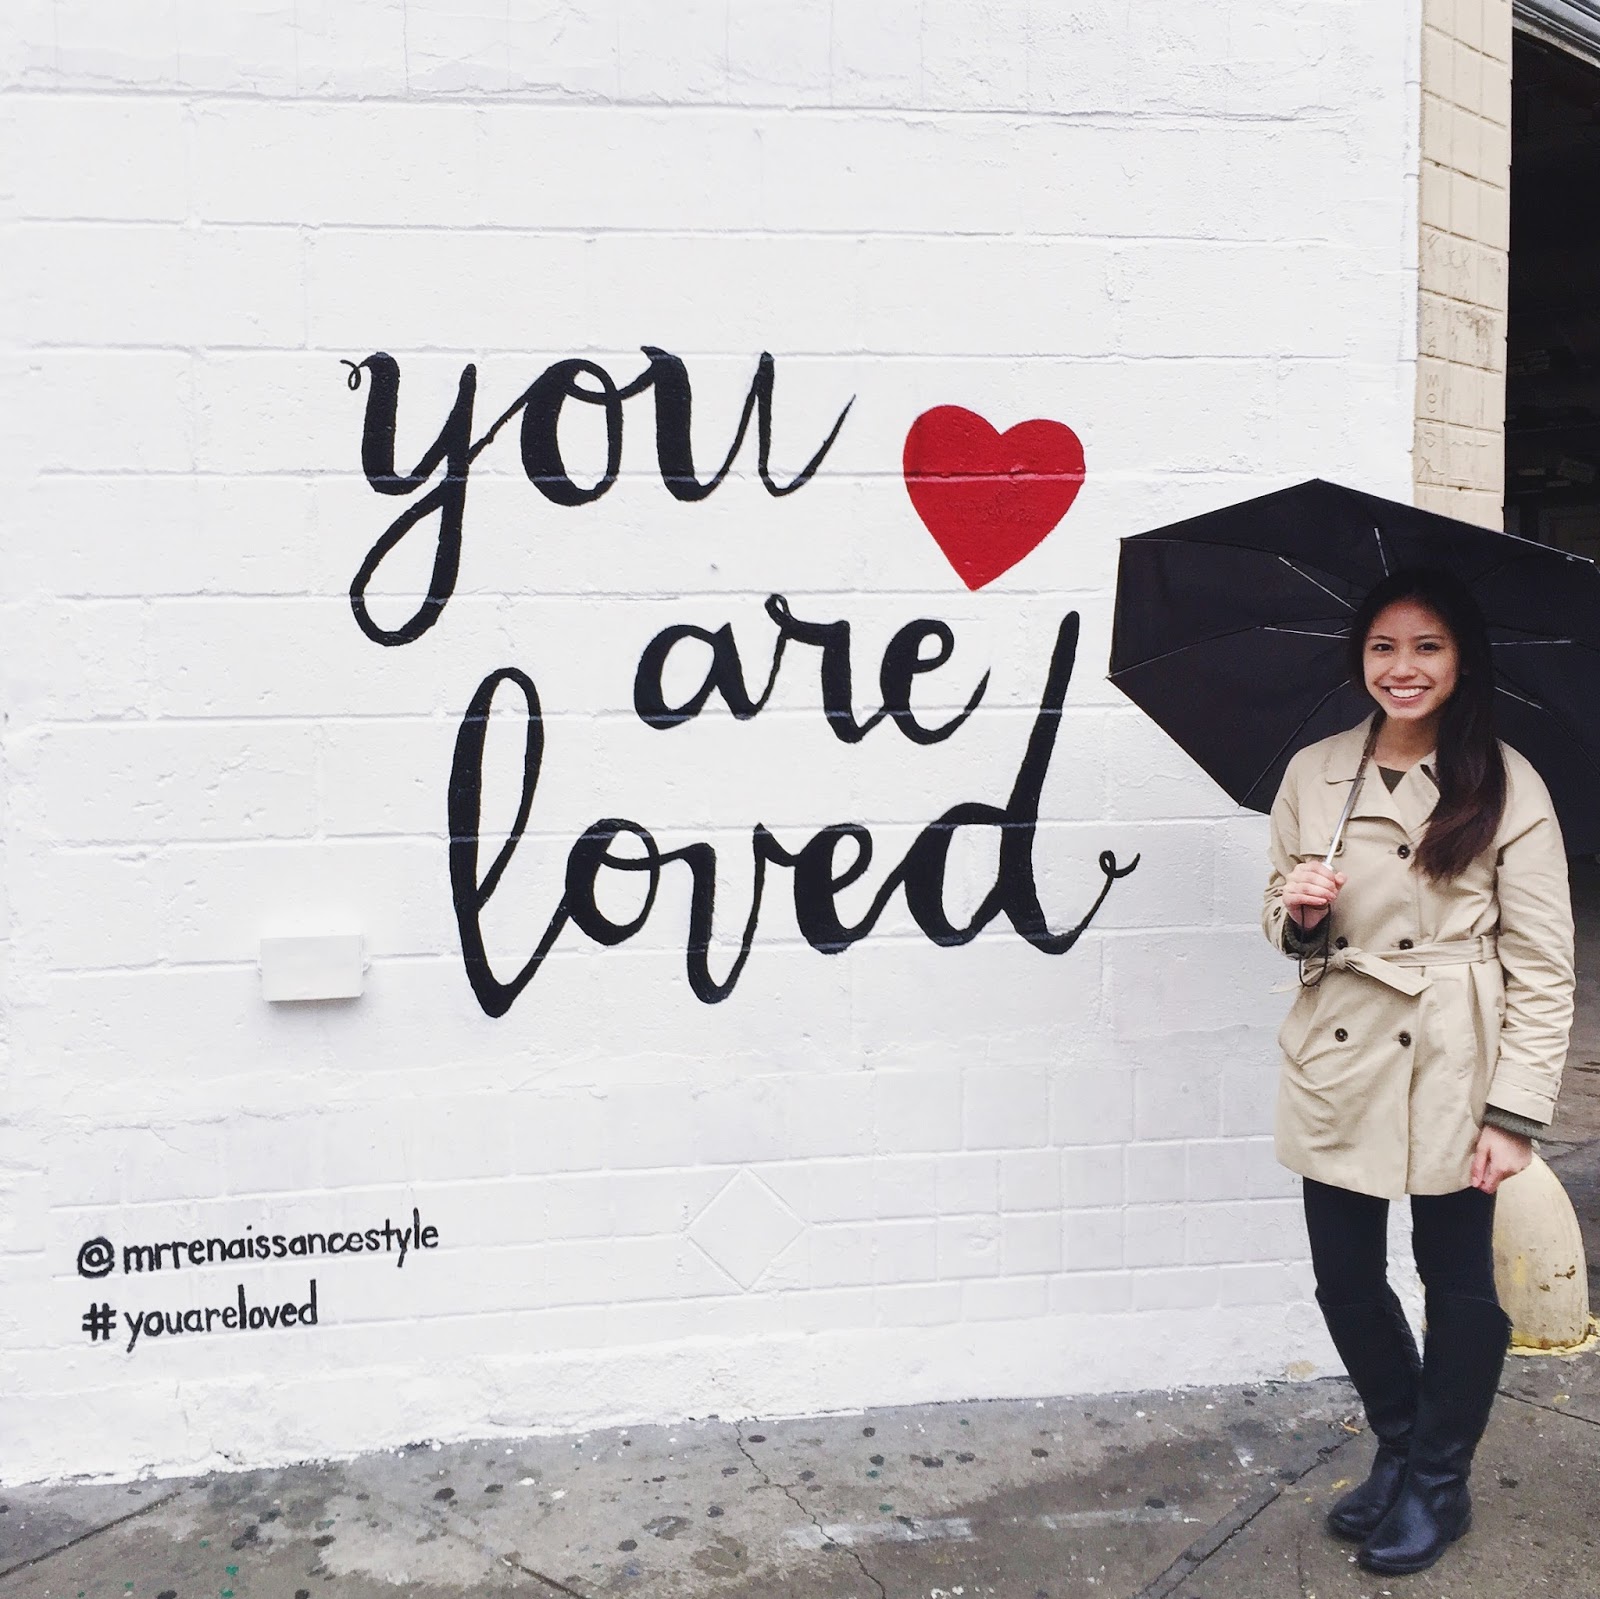 you
are
loved
@mrrenaissancestyle
#youareloved